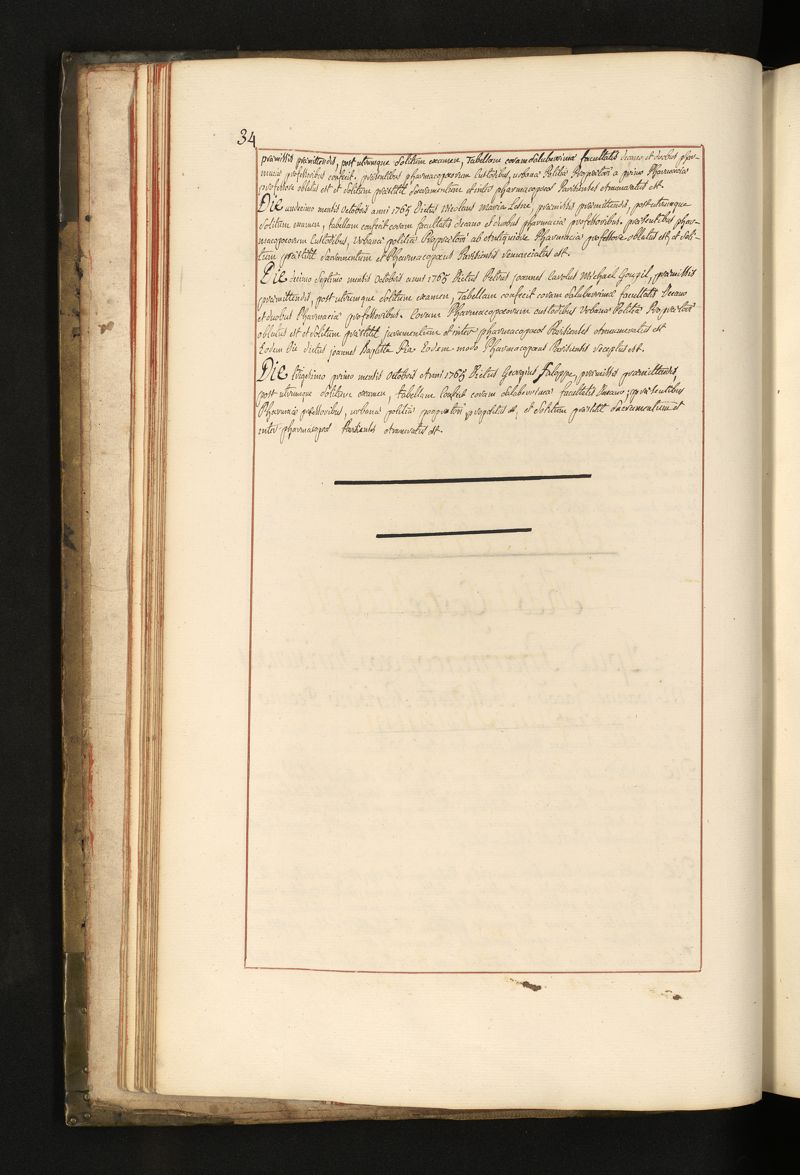 34
præmissis præmittendis, post utrumque solitum examen, Tabellam coram saluberrimæ facultatis decano, et duobus phar-
maciæ professoribus confecit. præsentibus pharmacopœorum Custodibus, urbanæ Politiæ Præpositori a primo Pharmaciæ
professore oblatus est et solitum præstitit Sacramentum et inter pharmacopœos Parisienses annumeratus est.
Die undecimo mensis octobris anni 1765 Dictus Nicolaus Maria præmissis præmittendis, post utrumque
solitum examen, tabellam confecit coram facultatis decano et duobus pharmaciæ professoribus. præsentibus phar-
macopœorum Custodibus, Urbanæ politiæ Præpositori ab Antiquiore Pharmaciæ professore oblatus est, et soli-
tum præstitit Sacramentum et Pharmacopœus Parisiensis renunciatus est.
Die decimo septimo mensis octobris anni 1765 Dictus Petrus joannes Carolus Michael Goupil, præmissis
præmittendis, post utrumque solitum examen, Tabellam confecit coram saluberrimæ facultatis Decano
et duobus Pharmaciæ professoribus. Coram Pharmacopœorum custodibus Urbanæ Politiæ Præpositori
oblatus est et solitum præstitit juramentum et inter pharmacopœos Parisienses annumeratus est
Eodem die dictus joannes Baptista Pia Eodem modo Pharmacopœus Parisiensis receptus est.
Die vigesimo primo mensis octobris Anni 1765 Dictus Georgius præmissis præmittendis,
post utrumque solitum examen, tabellam Confecit coram saluberrimæ facultatis Decano; præsentibus
Pharmaciæ professoribus, urbanæ politiæ est, et solitum præstitit Sacramentum et
inter pharmacopœos Parisienses annumeratus est.